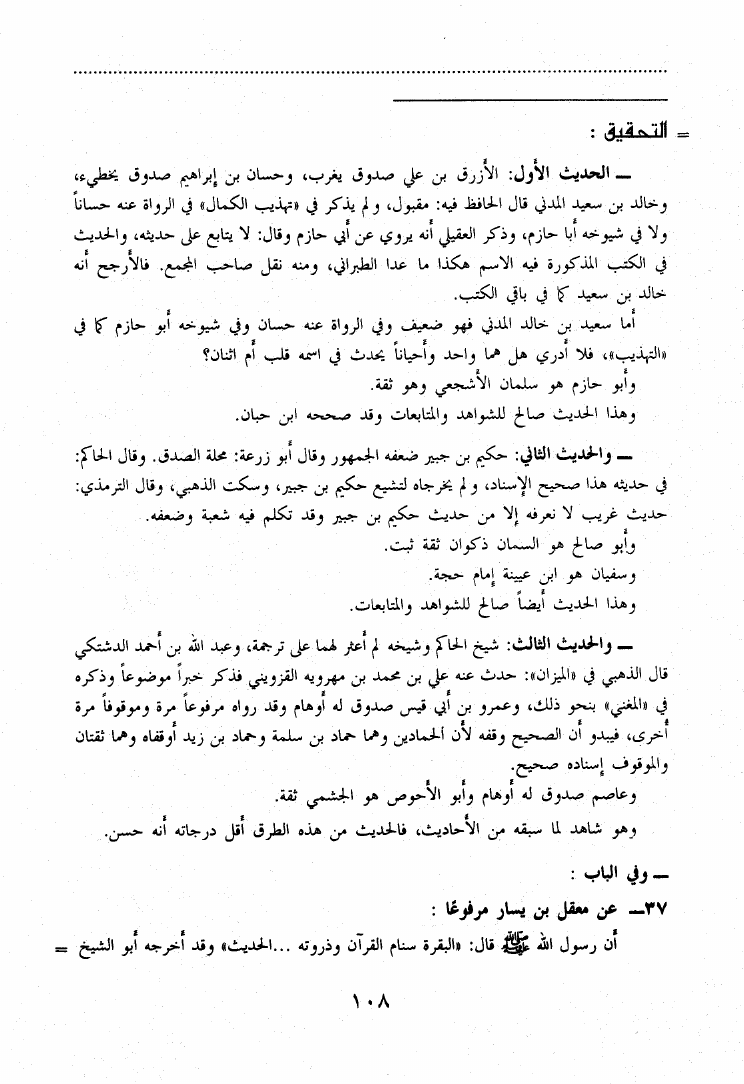 = التحقيق :
ــ الحديث الأول: الأزرق بن علي صدوق يغرب، وحسان بن إبراهيم صدوق يخطيء،
وخالد بن سعيد المدني قال الحافظ فيه: مقبول، ولم يذكر في «تهذيب الكمال» في الرواة عنه حساناً
ولا في شيوخه أبا حازم، وذكر العقيلي أنه يروي عن أبي حازم وقال: لا يتابع على حديثه، والحديث
في الكتب المذكورة فيه الاسم هكذا ما عدا الطبراني، ومنه نقل صاحب المجمع. فالأرجح أنه
خالد بن سعيد كما في باقي الكتب.
أما سعيد بن خالد المدني فهو ضعيف وفي الرواة عنه حسان وفي شيوخه أبو حازم كما في
«التهذيب»، فلا أدري هل هما واحد وأحياناً يحدث في اسمه قلب أم اثنان؟
وأبو حازم هو سلمان الأشجعي وهو ثقة.
وهذا الحديث صالح للشواهد والمتابعات وقد صححه ابن حبان.
ــ والحديث الثاني: حكيم بن جبير ضعفه الجمهور وقال أبو زرعة: محلة الصدق. وقال الحاكم:
في حديثه هذا صحيح الإسناد، ولم يخرجاه لتشيع حكيم بن جبير، وسكت الذهبي، وقال الترمذي:
حديث غريب لا نعرفه إلا من حديث حكيم بن جبير وقد تكلم فيه شعبة وضعفه.
وأبو صالح هو السمان ذكوان ثقة ثبت.
وسفيان هو ابن عيينة إمام حجة.
وهذا الحديث أيضاً صالح للشواهد والمتابعات.
ــ والحديث الثالث: شيخ الحاكم وشيخه لم أعثر لهما على ترجمة، وعبد الله بن أحمد الدشتكي
قال الذهبي في «الميزان»: حدث عنه علي بن محمد بن مهرويه القزويني فذكر خبراً موضوعاً وذكره
في «المغني» بنحو ذلك، وعمرو بن أبي قيس صدوق له أوهام وقد رواه مرفوعاً مرة وموقوفاً مرة
أخرى، فيبدو أن الصحيح وقفه لأن ألحمادين وهما حماد بن سلمة وحماد بن زيد أوقفاه وهما ثقتان
والموقوف إسناده صحيح.
وعاصم صدوق له أوهام وأبو الأحوص هو الجشمي ثقة.
وهو شاهد لما سبقه من الأحاديث، فالحديث من هذه الطرق أقل درجاته أنه حسن.
ــ وفي الباب :
٣٧ــ عن معقل بن يسار مرفوعًا :
أن رسول الله ﷺ قال: «البقرة سنام القرآن وذروته ...الحديث» وقد أخرجه أبو الشيخ =
١٠٨